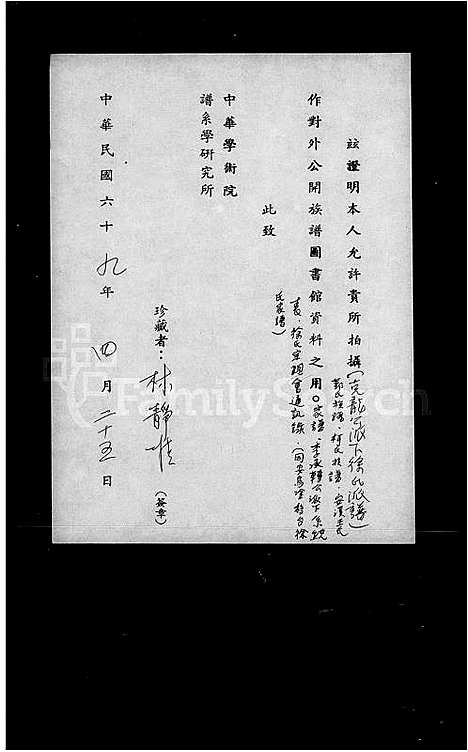 茲證明本人允許貴所拍攝(克龍公派下徐氏派譜)
鄭氏族譜·柯氏族譜·安溪王氏
作對外公開族譜圖書館資料之用。家譜·李承韓公派下系統
表·徐氏宗親會通訊錄·(同安烏塗 徐
氏家譜)
此致
中華學術院
譜系學研究所
珍藏者:林靜惟
(簽章)
中華民國六十九年四月二十五日
FamilySearch